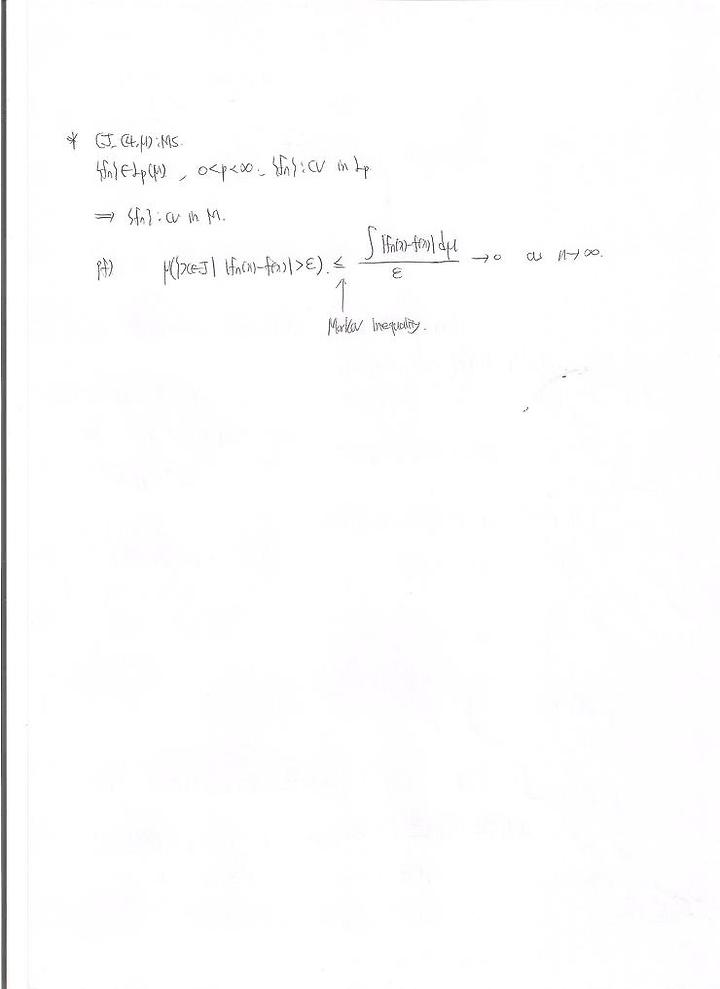 * (J, 𝒜, μ) : MS.
{fn} ∈ Lp(μ), 0<p<∞. {fn} : CV in Lp
⇒ {fn} : CV in M.
pf) μ({x∈J | |fn(x)-f(x)|>ε}) ≤ ∫|fn(x)-f(x)| dμ / ε → 0 as n→∞.
↑
Markov Inequality.